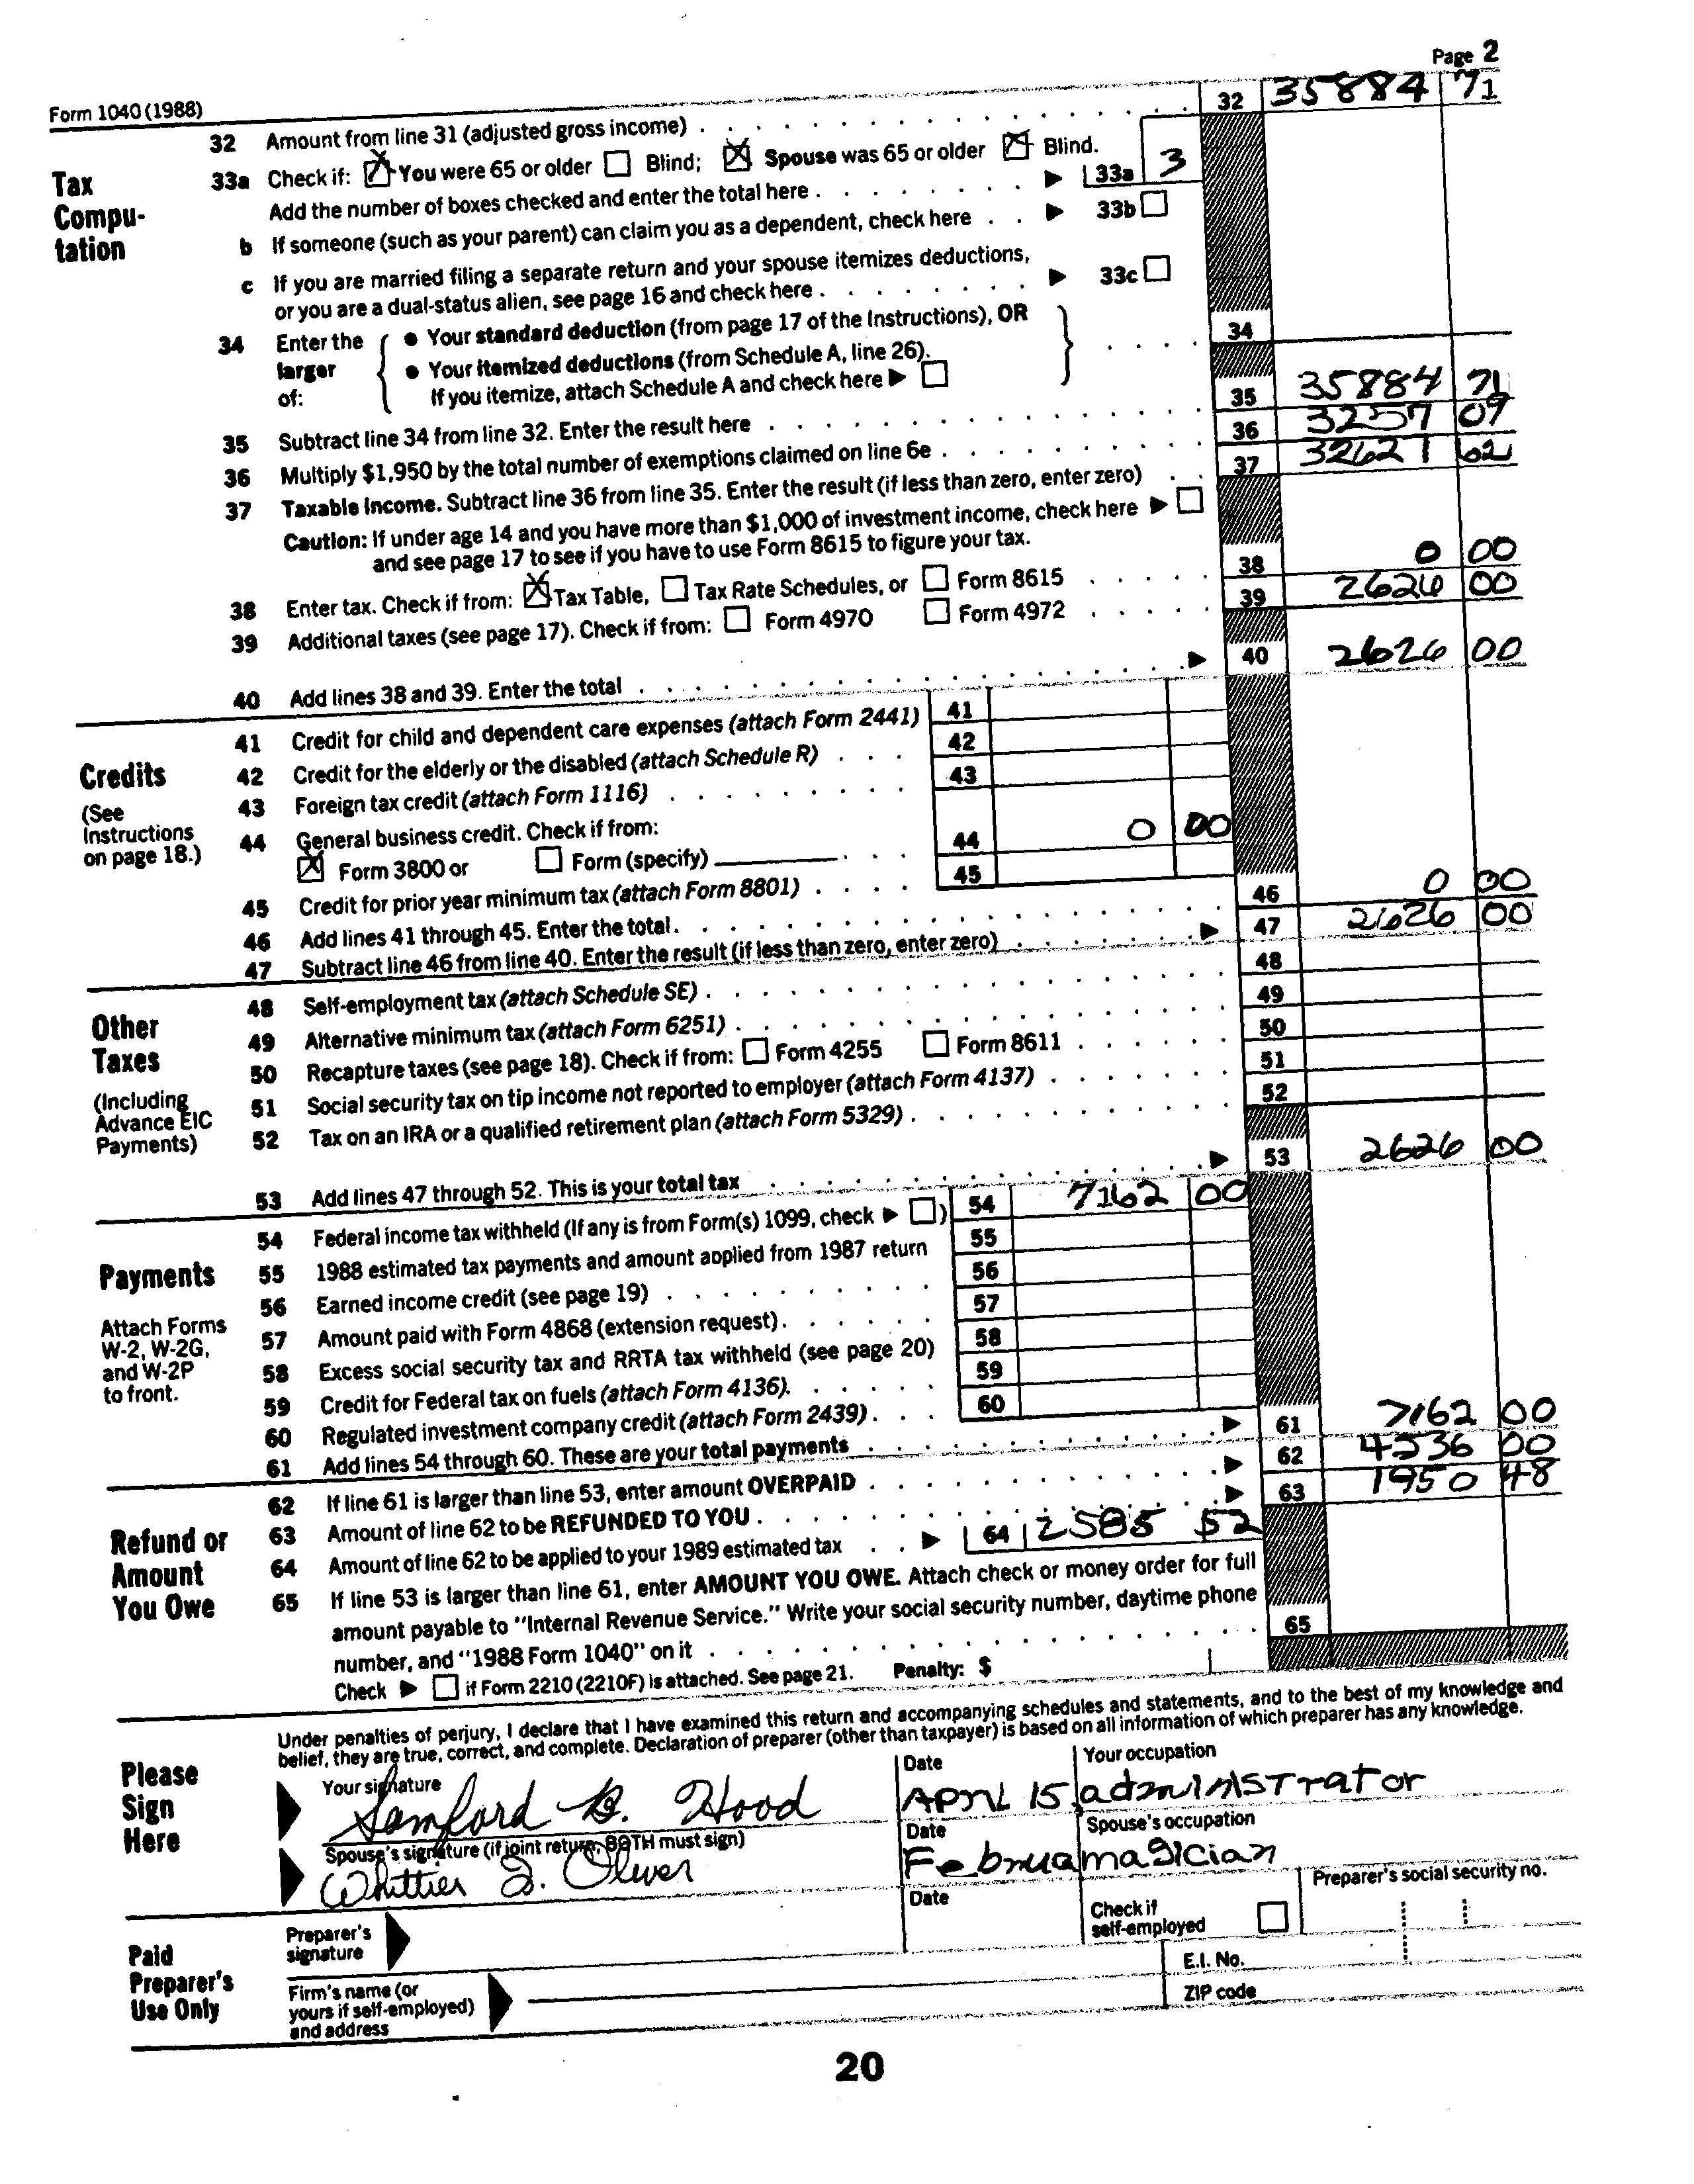 Page 2
Form 1040 (1988)
32 Amount from line 31 (adjusted gross income) 32 35884 71
Tax Compu-tation
33a Check if: ☒ You were 65 or older ☐ Blind; ☒ Spouse was 65 or older ☒ Blind.
Add the number of boxes checked and enter the total here ▶ 33a 3
b If someone (such as your parent) can claim you as a dependent, check here ▶ 33b ☐
c If you are married filing a separate return and your spouse itemizes deductions,
or you are a dual-status alien, see page 16 and check here ▶ 33c ☐
34 Enter the larger of:
● Your standard deduction (from page 17 of the Instructions), OR
● Your itemized deductions (from Schedule A, line 26).
If you itemize, attach Schedule A and check here ▶ ☐
34
35 Subtract line 34 from line 32. Enter the result here 35 35884 71
36 Multiply $1,950 by the total number of exemptions claimed on line 6e 36 3257 09
37 Taxable income. Subtract line 36 from line 35. Enter the result (if less than zero, enter zero) 37 32621 62
Caution: If under age 14 and you have more than $1,000 of investment income, check here ▶ ☐
and see page 17 to see if you have to use Form 8615 to figure your tax.
38 Enter tax. Check if from: ☒ Tax Table, ☐ Tax Rate Schedules, or ☐ Form 8615 38 0 00
39 Additional taxes (see page 17). Check if from: ☐ Form 4970 ☐ Form 4972 39 2626 00
40 Add lines 38 and 39. Enter the total ▶ 40 2626 00
Credits
(See Instructions on page 18.)
41 Credit for child and dependent care expenses (attach Form 2441) 41
42 Credit for the elderly or the disabled (attach Schedule R) 42
43 Foreign tax credit (attach Form 1116) 43
44 General business credit. Check if from:
☒ Form 3800 or ☐ Form (specify) 44 0 00
45 Credit for prior year minimum tax (attach Form 8801) 45
46 Add lines 41 through 45. Enter the total 46 0 00
47 Subtract line 46 from line 40. Enter the result (if less than zero, enter zero) ▶ 47 2626 00
Other Taxes
(Including Advance EIC Payments)
48 Self-employment tax (attach Schedule SE) 48
49 Alternative minimum tax (attach Form 6251) 49
50 Recapture taxes (see page 18). Check if from: ☐ Form 4255 ☐ Form 8611 50
51 Social security tax on tip income not reported to employer (attach Form 4137) 51
52 Tax on an IRA or a qualified retirement plan (attach Form 5329) 52
53 Add lines 47 through 52. This is your total tax ▶ 53 2626 00
Payments
Attach Forms W-2, W-2G, and W-2P to front.
54 Federal income tax withheld (If any is from Form(s) 1099, check ▶ ☐) 54 7162 00
55 1988 estimated tax payments and amount applied from 1987 return 55
56 Earned income credit (see page 19) 56
57 Amount paid with Form 4868 (extension request) 57
58 Excess social security tax and RRTA tax withheld (see page 20) 58
59 Credit for Federal tax on fuels (attach Form 4136) 59
60 Regulated investment company credit (attach Form 2439) 60
61 Add lines 54 through 60. These are your total payments ▶ 61 7162 00
Refund or Amount You Owe
62 If line 61 is larger than line 53, enter amount OVERPAID ▶ 62 4536 00
63 Amount of line 62 to be REFUNDED TO YOU ▶ 63 1950 48
64 Amount of line 62 to be applied to your 1989 estimated tax ▶ 64 2585 52
65 If line 53 is larger than line 61, enter AMOUNT YOU OWE. Attach check or money order for full
amount payable to "Internal Revenue Service." Write your social security number, daytime phone
number, and "1988 Form 1040" on it 65
Check ▶ ☐ if Form 2210 (2210F) is attached. See page 21. Penalty: $
Please Sign Here
Under penalties of perjury, I declare that I have examined this return and accompanying schedules and statements, and to the best of my knowledge and
belief, they are true, correct, and complete. Declaration of preparer (other than taxpayer) is based on all information of which preparer has any knowledge.
Your signature Date Your occupation
Samford B. Hood April 15 administrator
Spouse's signature (if joint return, BOTH must sign) Date Spouse's occupation
Whittier I. Oliver Februa magician
Paid Preparer's Use Only
Preparer's signature Date Check if self-employed ☐ Preparer's social security no.
Firm's name (or yours if self-employed) and address E.I. No.
ZIP code
20